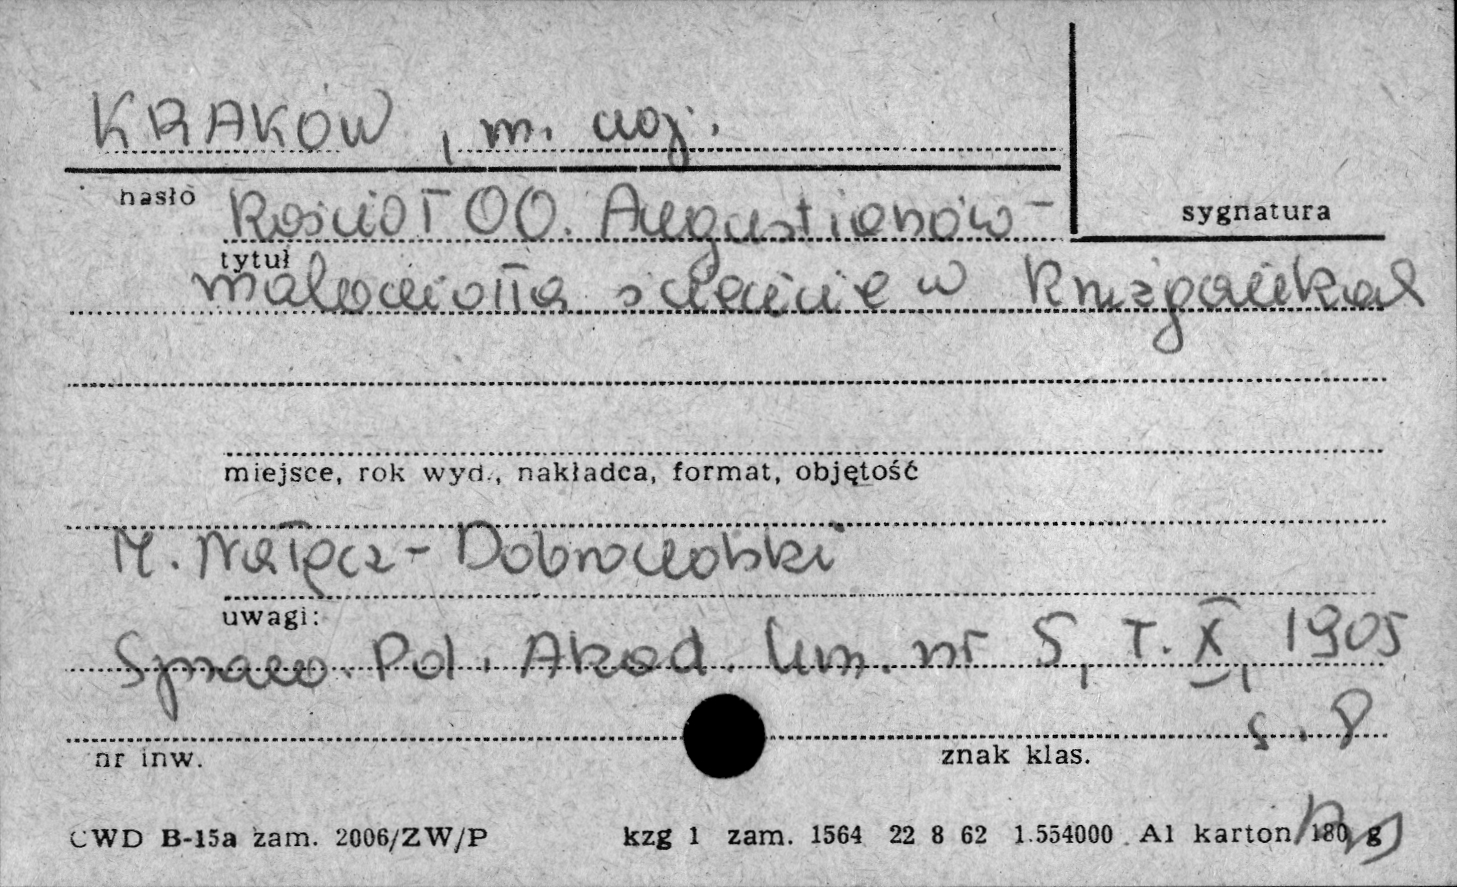 KRAKÓW, m. woj.
hasło
Kościół OO. Augustianów -
sygnatura
tytuł
malowidła ścienne w krużgankach
miejsce, rok wyd., nakładca, format, objętość
M. Nałęcz - Dobrowolski
uwagi:
Spraw. Pol. Akad. Um. nr 5, T. X, 1905
s. 8
nr inw.
znak klas.
CWD B-15a zam. 2006/ZW/P kzg 1 zam. 1564 22 8 62 1.554000 A1 karton 180 g